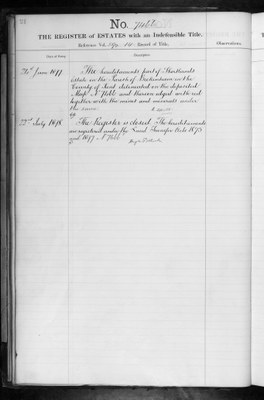 No. 7466
THE REGISTER of ESTATES with an Indefeasible Title.
Reference Vol. Record of Title.
Observations.
Date of Entry.
Description.
June 1877
The hereditaments part of
Estate in the Parish of in the
County of Kent delineated on the deposited
Map No 7466 and thereon edged with red
together with the mines and minerals under
the same
22nd July 1898
The Register is closed. The hereditaments
are registered under the Land Transfer Acts 1875
and 1897 - No 7466